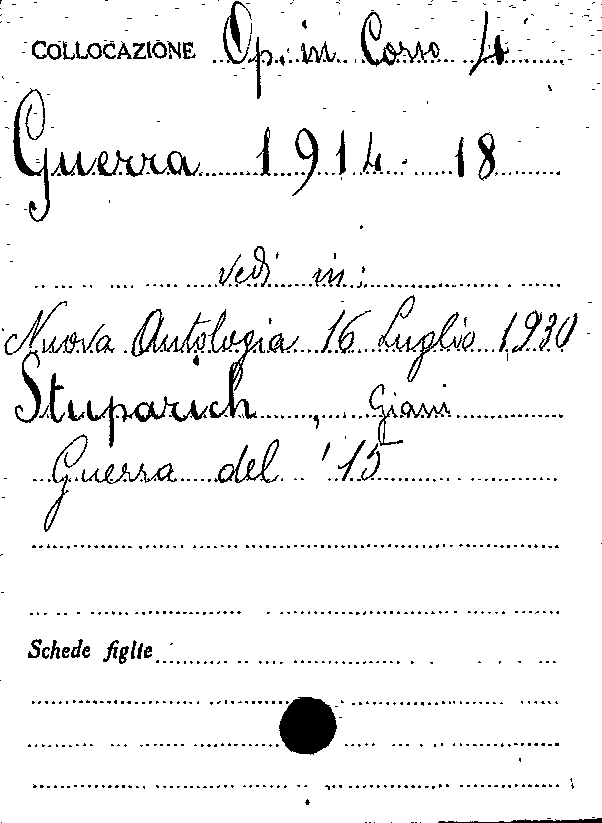 COLLOCAZIONE Op. in Corso 4
Guerra 1914-18
vedi in:
Nuova Antologia 16 Luglio 1930
Stuparich, Giani
Guerra del '15
Schede figlie